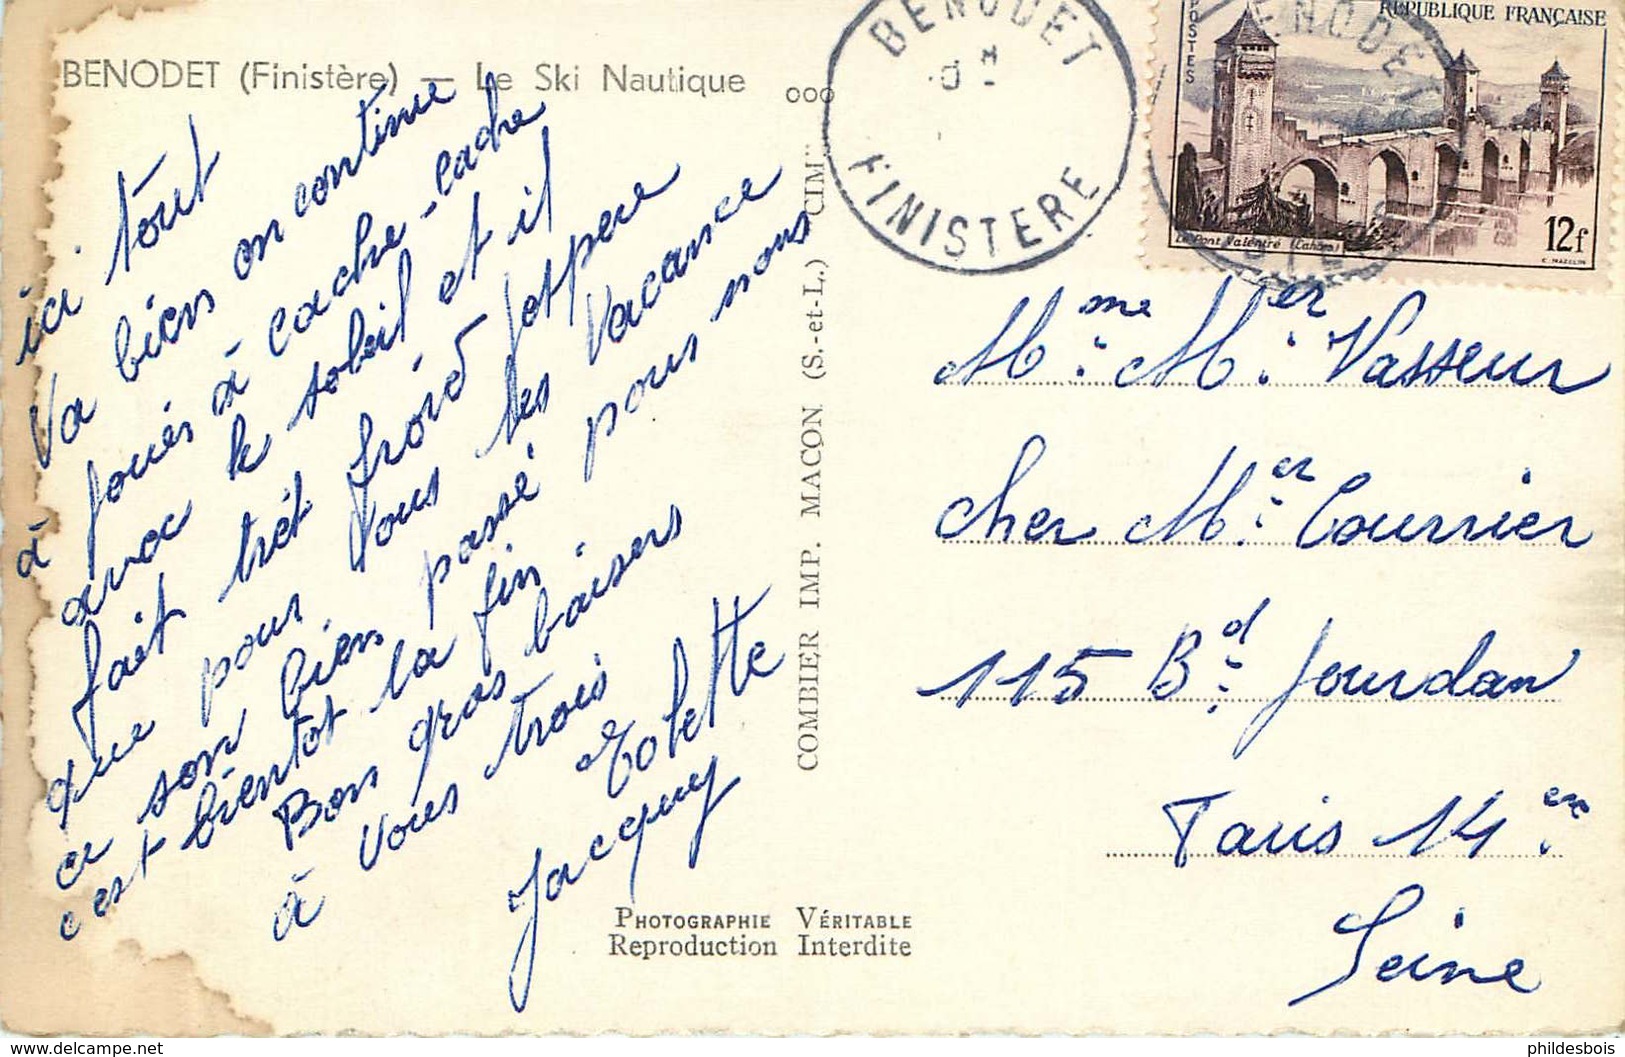 BENODET (Finistère) — Le Ski Nautique
ooo
ici tout
va bien on continue
à jouès à cache-cache
avac le soleil et il
fait trèt froid jesper
que pour vous les vacance
ce son bien passé pour nous
c'est bientot la fin
Bons gros baisers
à vous trois
Colette
Jacquy
PHOTOGRAPHIE VÉRITABLE
Reproduction Interdite
COMBIER IMP. MACON (S.-et-L.) "CIM"
BENODET
FINISTERE
BENODET
POSTES
REPUBLIQUE FRANÇAISE
Le Pont Valentré (Cahors)
12f
C. MAZELIN
Mme. Mer. Vasseur
cher Mer. Courrier
115 Bd. Jourdan
Paris 14 eme.
Seine
phildesbois